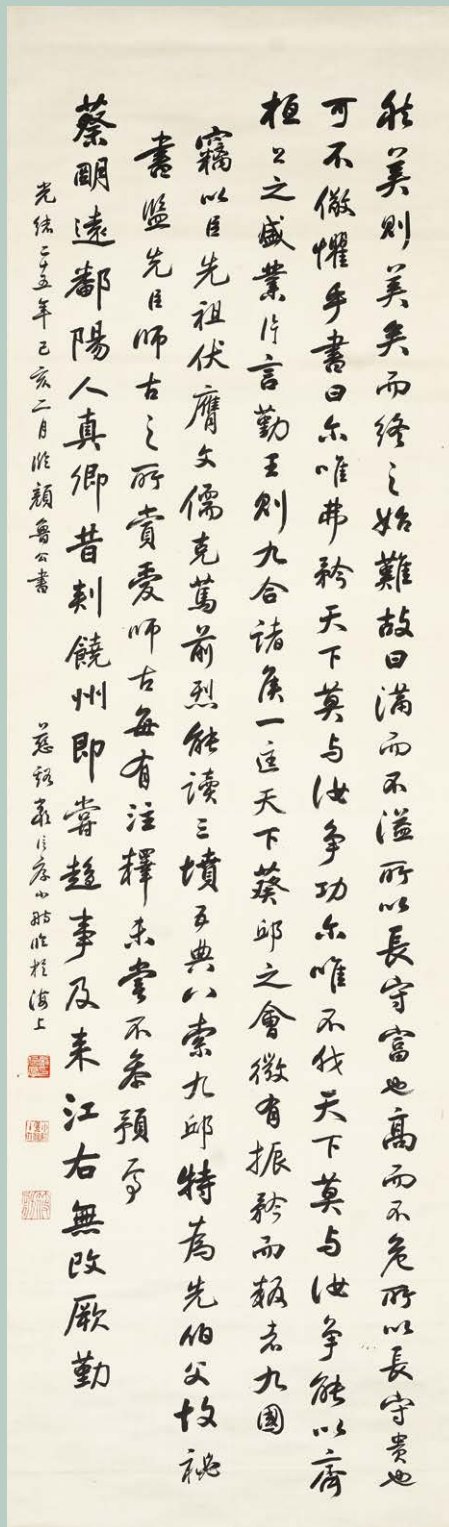 然美則美矣而終之始難故曰滿而不溢所以長守富也高而不危所以長守貴也
可不儆懼乎書曰尔唯弗矜天下莫与汝争功尔唯不伐天下莫与汝争能以齊
桓公之盛業片言勤王則九合諸侯一匡天下葵邱之會微有振矜而叛者九國
竊以臣先祖伏膺文儒克篤前烈能讀三墳五典八索九邱特為先伯父故祕
書監先臣師古之所賞愛師古每有注釋未嘗不參預焉
蔡明遠鄱陽人真卿昔刺饒州即嘗趨事及来江右無改厥勤
光緒二十五年己亥二月臨顏魯公書
慈谿嚴信厚小舫臨於海上